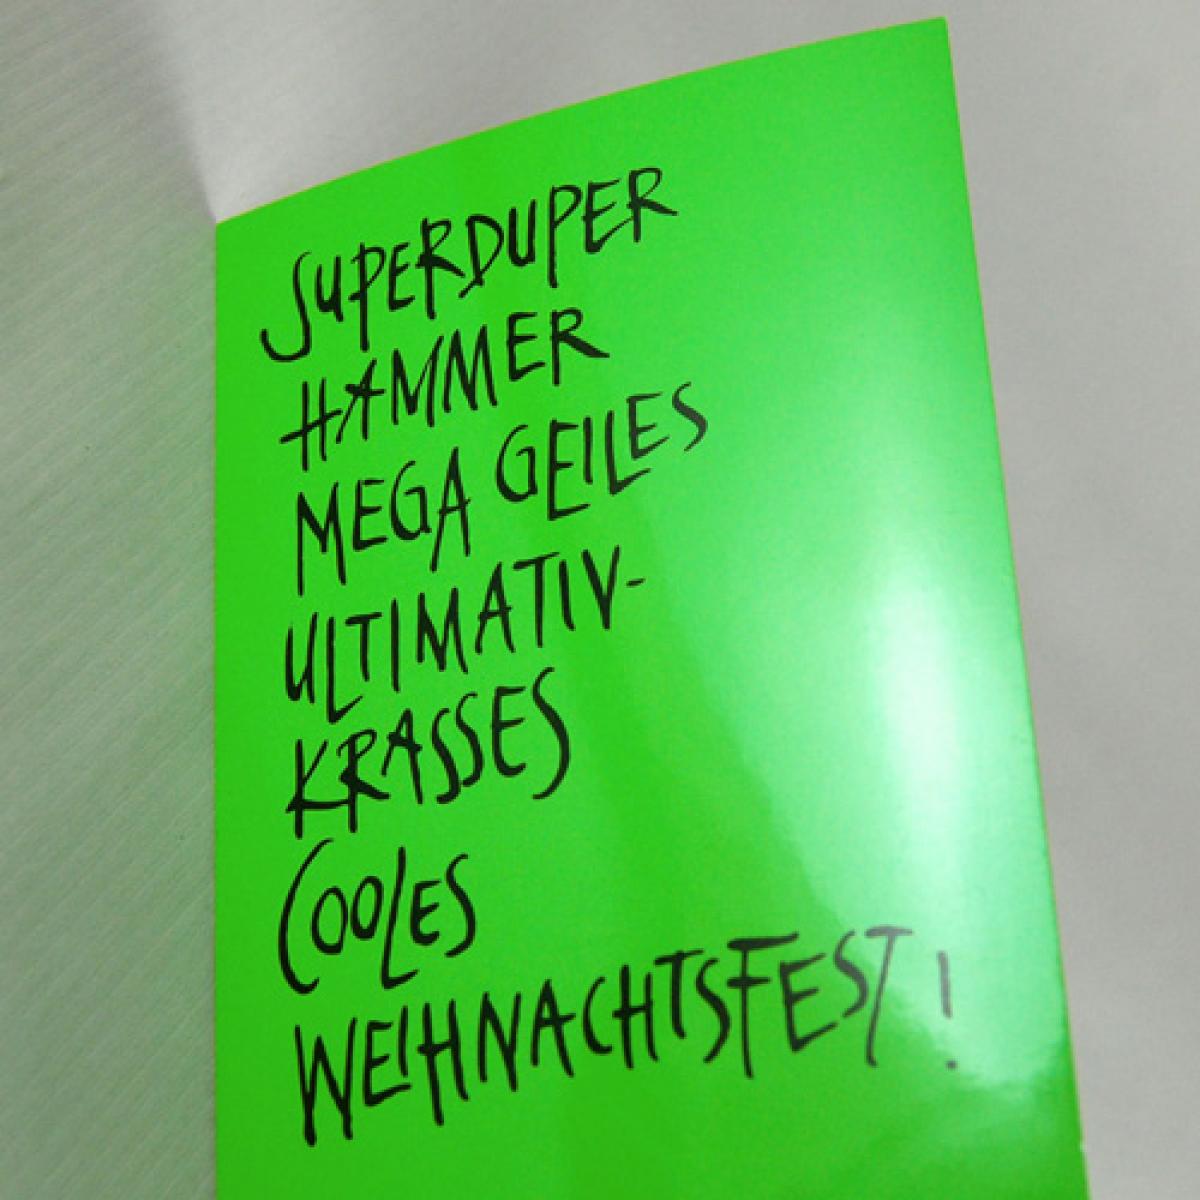 SUPERDUPER
HAMMER
MEGA GEILES
ULTIMATIV-
KRASSES
COOLES
WEIHNACHTSFEST!